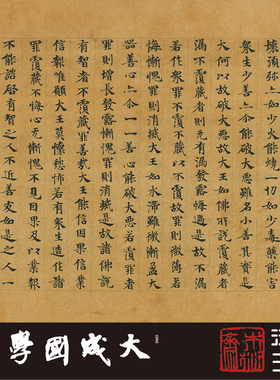 壞須弥亦如少火能燒一切如少毒藥能害
衆生少善亦尒能破大惡雖名小善其實是
大何以故破大惡故大王如佛所說覆藏者
漏不覆藏者則无有漏發露悔過是故不漏
若作衆罪不覆不藏以不覆故罪則微薄若
懷慚愧罪則消滅大王如水渧雖微漸盈大
器善心亦尒一一善心能破大惡若覆罪者
罪則增長發露慚愧罪則消滅是故諸佛說
有智者不覆藏罪善哉大王能信因果信業
信報唯願大王莫懷愁怖若有衆生造作諸
罪覆藏不悔心无慚愧不見因果及以業報
不能諮啓有智之人不近善友如是之人一
大成國學